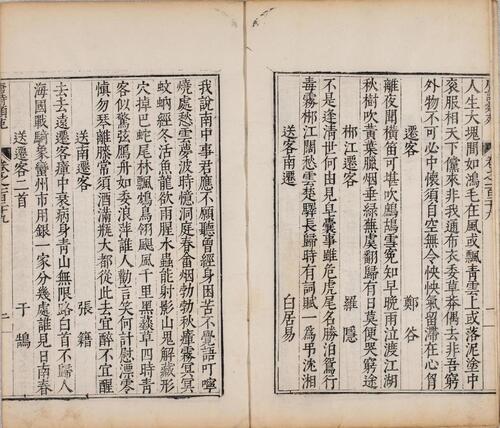 人生大塊間如鴻毛在風或飄青雲上或落泥塗中
袞服相天下儻來非我通布衣委草莽偶去非吾窮
外物不可心中懷須自空無令怏怏氣留滯在心胷
遷客 鄭谷
離夜聞橫笛可堪吹鷓鴣雪冤知早晚雨泣渡江湖
秋樹吹黃葉臘烟垂綠蕪虞翻歸有日莫便哭窮途
郴江遷客 羅隱
不是逢清世何由見皂囊事雖危虎尾名勝泊鴛行
毒霧郴江闊愁雲楚驛長歸時有詞賦一爲弔沅湘
送客南遷 白居易
我說南中事君應不願聽曾經身困苦不覺語叮嚀
燒處愁雲夢波時憶洞庭春畬烟勃勃秋瘴露冥冥
蚊蚋經冬活魚龍欲雨腥水蟲能射影山鬼解藏形
穴掉巴蛇尾林飄鴆鳥翎颶風千里黑䔩草四時青
客似驚弦鴈舟如委浪萍誰人勸言笑何計慰漂零
慎勿琴離膝常須酒滿瓶大都從此去宜醉不宜醒
送南遷客 張籍
去去遠遷客瘴中衰病身青山無限路白首不歸人
海國戰騎象蠻州市用銀一家分幾處誰見日南春
送遷客二首 于鵠